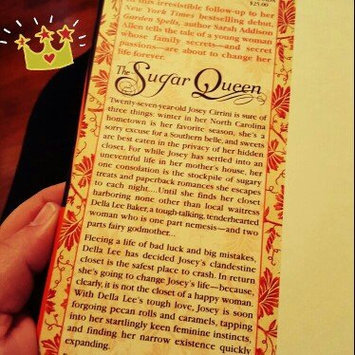 $25.00
this irresistible follow-up to her
New York Times bestselling debut,
Garden Spells, author Sarah Addison
Allen tells the tale of a young woman
whose family secrets—and secret
passions—are about to change her
life forever.
The Sugar Queen
Twenty-seven-year-old Josey Cirrini is sure of
three things: winter in her North Carolina
hometown is her favorite season, she's a
sorry excuse for a Southern belle, and sweets
are best eaten in the privacy of her hidden
closet. For while Josey has settled into an
uneventful life in her mother's house, her
one consolation is the stockpile of sugary
treats and paperback romances she escapes
to each night.... Until she finds her closet
harboring none other than local waitress
Della Lee Baker, a tough-talking, tenderhearted
woman who is one part nemesis—and two
parts fairy godmother...
Fleeing a life of bad luck and big mistakes,
Della Lee has decided Josey's clandestine
closet is the safest place to crash. In return
she's going to change Josey's life—because,
clearly, it is not the closet of a happy woman.
With Della Lee's tough love, Josey is soon
forgoing pecan rolls and caramels, tapping
into her startlingly keen feminine instincts,
and finding her narrow existence quickly
expanding.